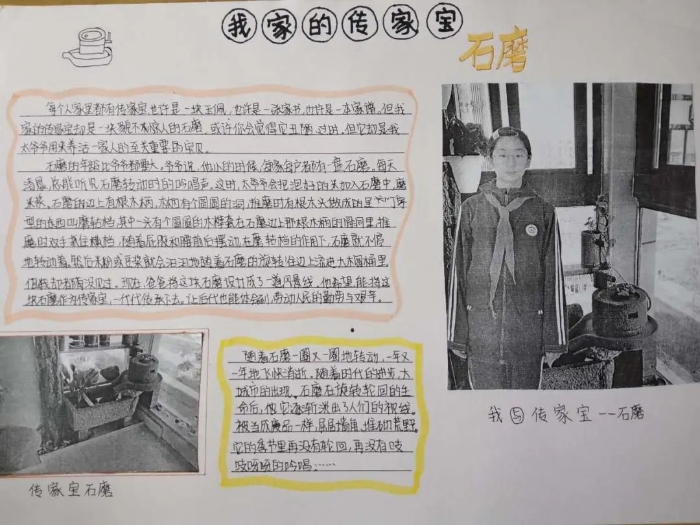 我家的传家宝
石磨
每个人家里都有传家宝也许是一块玉佩,也许是一张家书,也许是一本家谱。但我
家的传家宝却是一块貌不惊人的石磨。或许你会觉得它丑陋、过时,但它却是我
太爷爷用来养活一家人的至关重要的宝贝。
石磨的年龄比爷爷都要大,爷爷说,他小的时候,每家每户都有一盘石磨。每天
清晨,总能听见石磨转动时的吟唱声。这时,太爷爷会把泡好的米加入石磨中,磨
米浆。石磨的边上有根木柄,木柄有个圆圆的洞,推磨时有根木头做成的呈“丁”字
型的东西叫磨转档,其中一头有个圆圆的木棒套在石磨边上那根木柄的洞里,推
磨时双手抓住横档,随着后腿和腰前后摆动在磨转档的作用下,石磨就不停
地转动着,然后米粉或豆浆就会汩汩地随着石磨的旋转往边上流进大木圆桶里,
但我却未曾见过。现在,爸爸将这块石磨设计成了一道风景线,他希望能将这
块石磨作为传家宝,一代代传承下去。让后代也能体会到,劳动人民的勤劳与艰辛。
随着石磨一圈又一圈地转动,一年又
一年地飞快消逝。随着时代的进步,大
城市的出现。石磨在旋转轮回的生
命后,他它逐渐淡出了人们的视线。
被当成废品一样,屈居墙角,堆砌荒野。
它的季节里再没有轮回,再没有吱
吱呀呀的吟唱……
传家宝石磨
我与传家宝——石磨